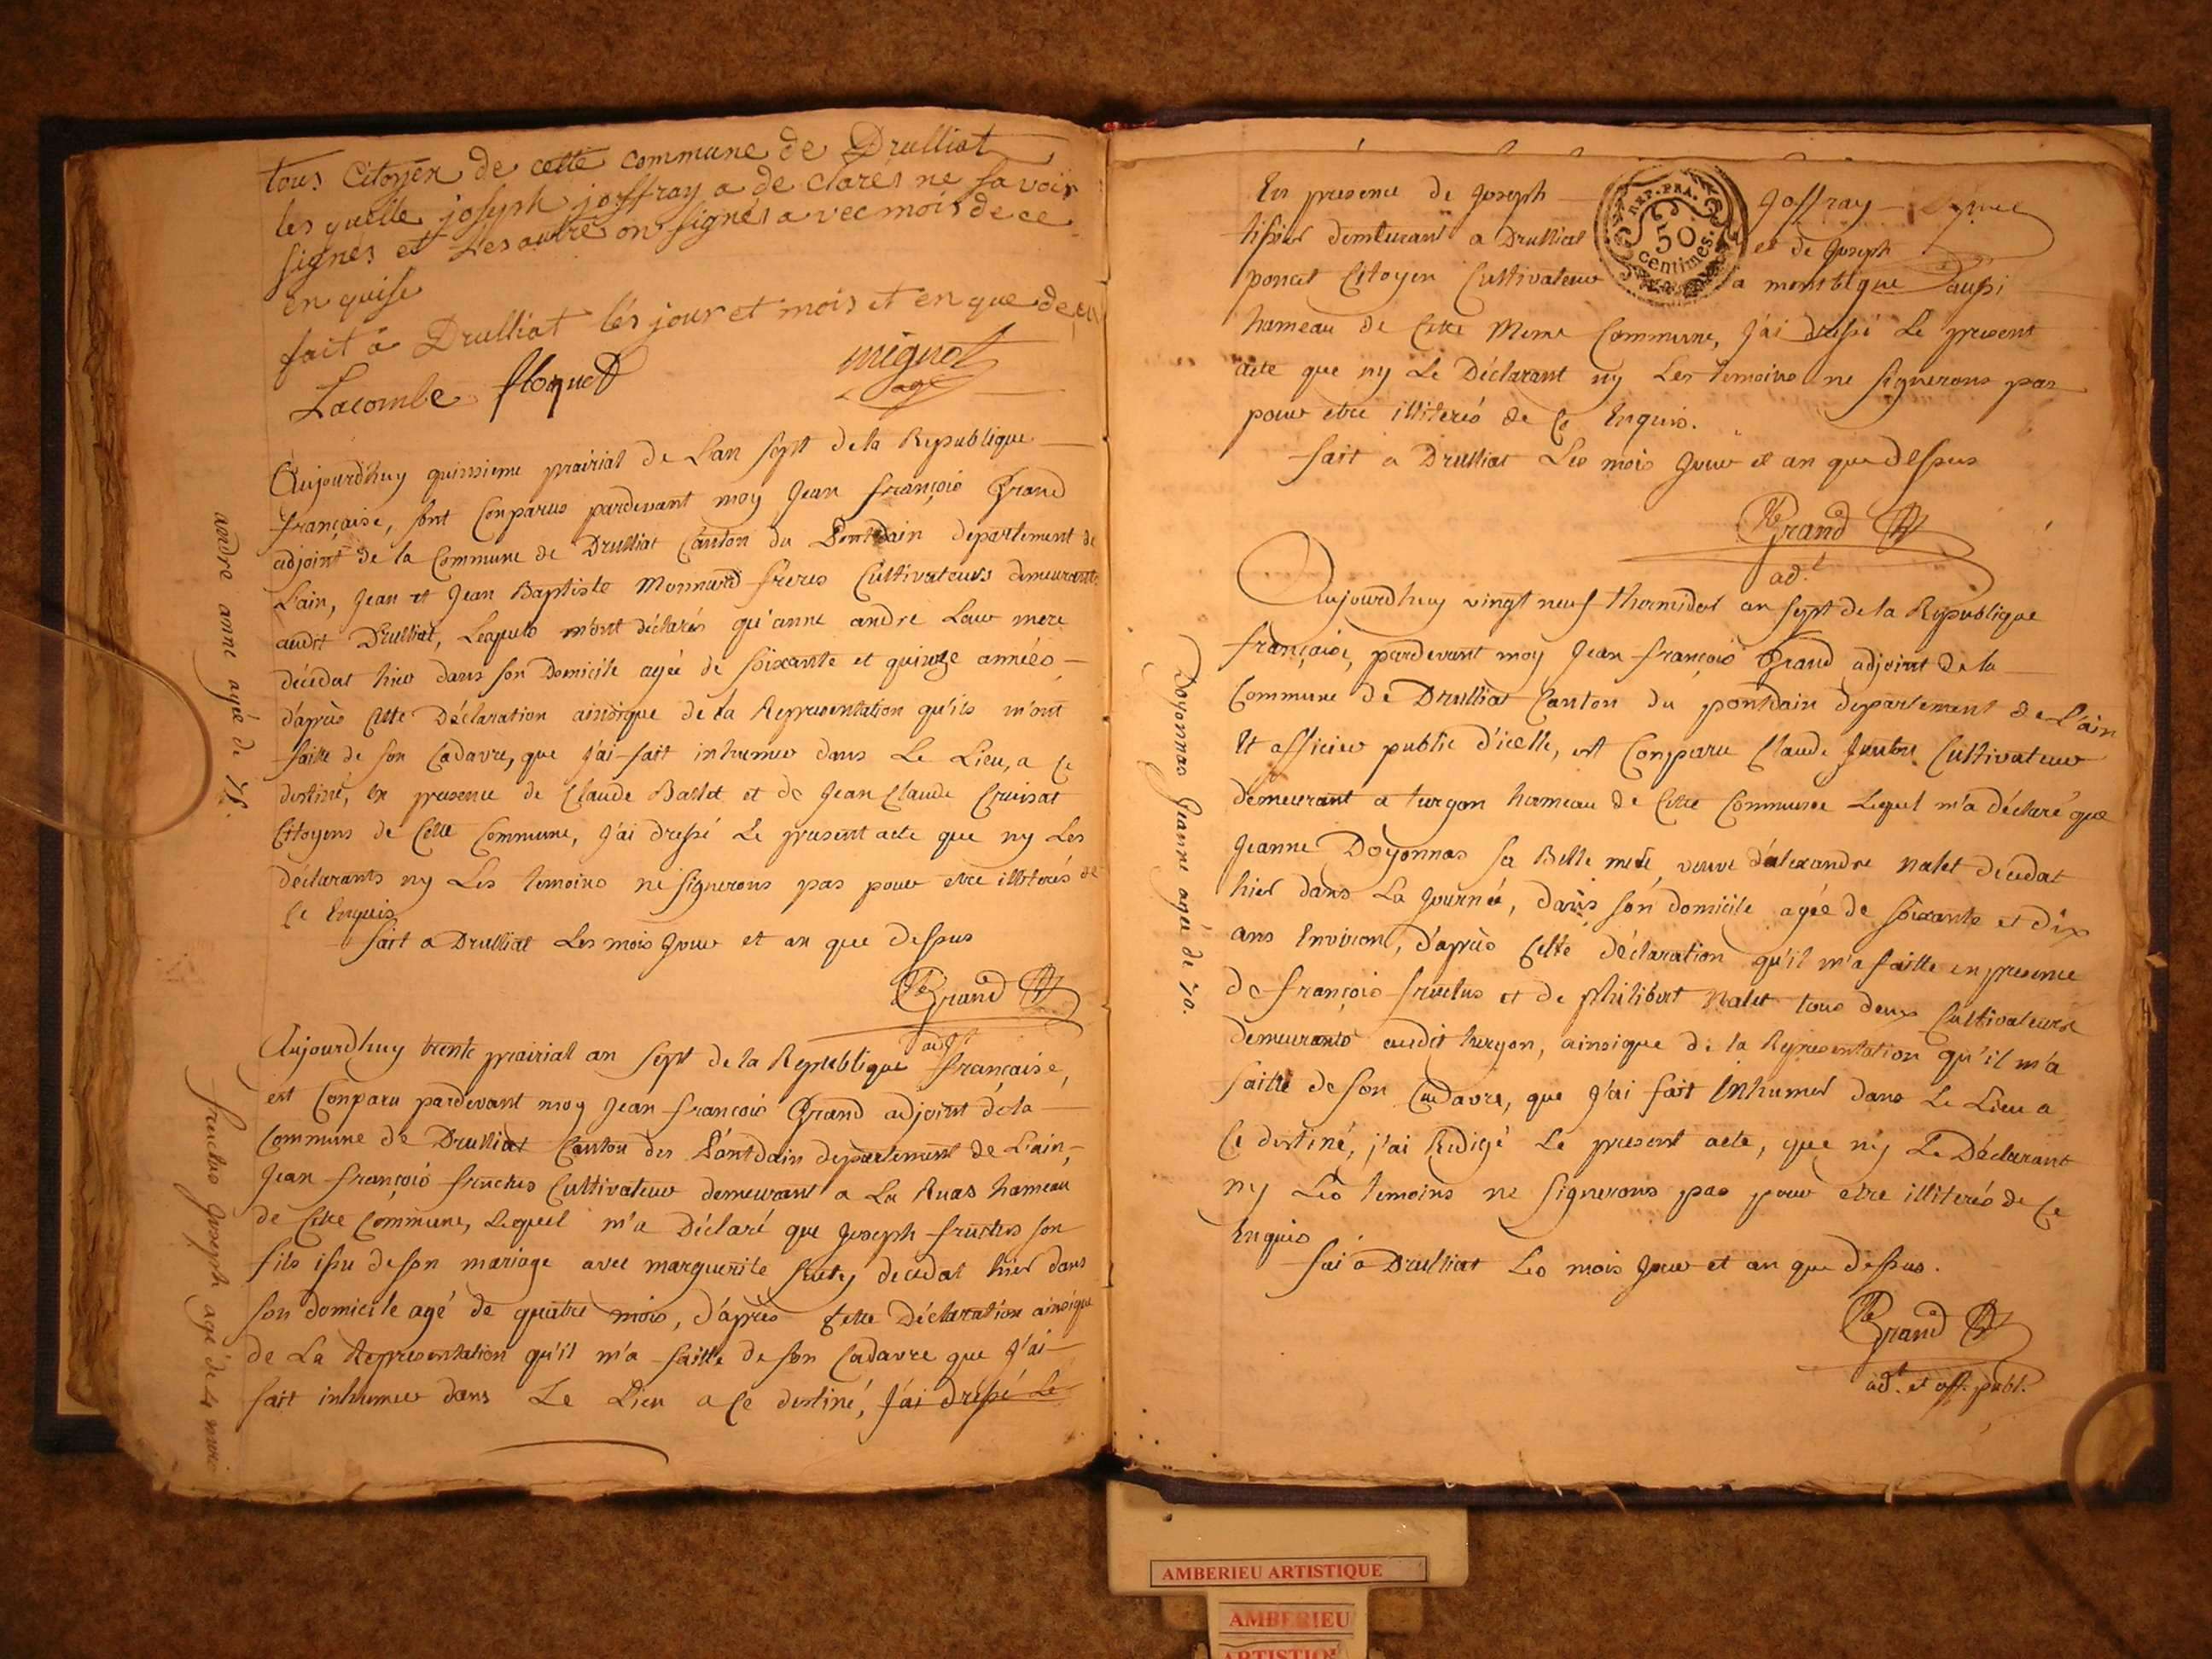 tous Citoyen de cette commune de Drulliat
les quelle joseph joffray a de clarés ne savoir
signés et Les autre on signés avec mois de ce
en quise
fait a Drulliat les jour et mois et en que de
Lacombe floquet mignot
age
Aujourd'huy quinsieme prairial de L'an sept de la Republique
française, sont Conparus pardevant moy Jean françois Grand
adjoint de la Commune de Drulliat Canton du Pontdain departement de
L'ain, Jean et Jean Baptiste Monnard freres Cultivateurs demeurants
audit Drulliat, Lesquels m'ont déclarés qu'anne andre Leur mere
décédat hier dans son Domicile agée de soixante et quinze années
d'après Cette Déclaration ainsique de la Representation qu'ils m'ont
faitte de son Cadavre, que j'ai fait inhumer dans Le Lieu, a Ce
destiné, en presence de Claude Ballet et de Jean Claude Cruisat
Citoyens de Cette Commune, j'ai dressé Le present acte que ny Les
declarants ny Les temoins ne signerons pas pour etre illiterés de
Ce Enquis
fait a Drulliat Les mois Jour et an que dessus
Grand
adjt
andre anne agée de 75.
Aujourdhuy trente prairial an sept de la Republique française,
est Conparu pardevant moy Jean françois Grand adjoint de la
Commune de Drulliat Canton des Pontdain departement de L'ain,
Jean françois fructus Cultivateur demeurant a La Ruas hameau
de Cette Commune, Lequel m'a Déclaré que Joseph fructus son
fils issu de son mariage avec marguerite decedat hier dans
son domicile agé de quatre mois, d'après Cette Déclaration ainsique
de La Representation qu'il m'a faitte de son Cadavre que j'ai
fait inhumer dans Le Lieu a Ce destiné, j'ai dressé Le
fructus Joseph agé de 4 mois
En presence de Joseph Joffray
tissier demeurant a Drulliat et de Joseph
poncet Citoyen Cultivateur a aussi
hameau de Cette Meme Commune, j'ai dressé Le present
acte que ny Le Déclarant ny Les temoins ne signerons pas
pour etre illiterés de Ce Enquis.
fait a Drulliat Les mois Jour et an que dessus
REP. FRA.
50
centimes.
Grand
adt
Aujourdhuy vingt neuf thermidor an sept de la Republique
française, pardevant moy Jean françois Grand adjoint de la
Commune de Drulliat Canton du pontdain departement de L'ain
Et officier public d'icelle, est Conparu Claude Cultivateur
demeurant a turgon hameau de Cette Commune Lequel m'a déclaré que
Jeanne Doyonnas sa Belle mere, veuve d'alexandre nalet décedat
hier dans La Journée, dans son domicile agée de soixante et dix
ans Environ, d'après Cette déclaration qu'il m'a faitte en presence
de françois fructus et de philibert Nalet tous deux Cultivateurs
demeurants audit turgon, ainsique de la Representation qu'il m'a
faitte de son Cadavre, que j'ai fait inhumer dans Le Lieu a
Ce destiné, j'ai Redigé Le present acte, que ny Le Déclarant
ny Les temoins ne signerons pas pour etre illiterés de Ce
Enquis
fai a Drulliat Les mois Jour et an que dessus.
Grand
adt. et off. publ.
Doyonnas Jeanne agée de 70.
AMBERIEU ARTISTIQUE
AMBERIEU